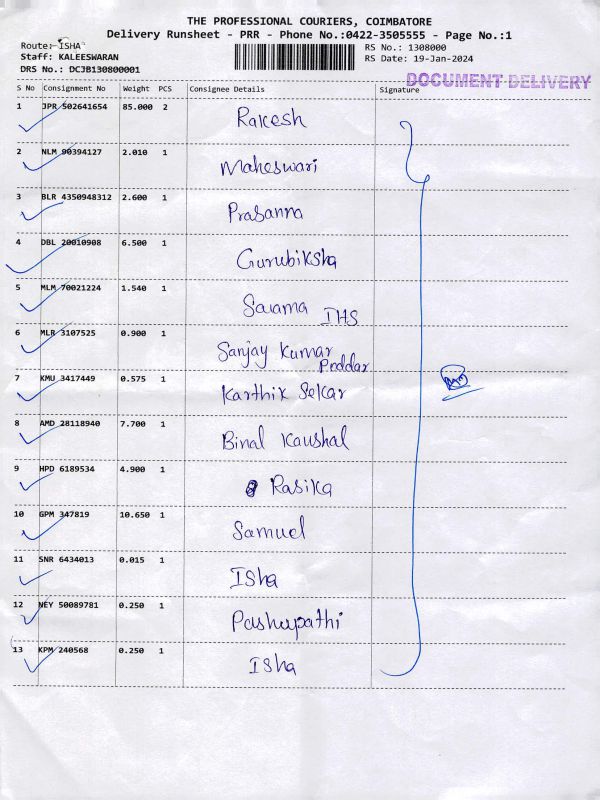 THE PROFESSIONAL COURIERS, COIMBATORE
Delivery Runsheet - PRR - Phone No.:0422-3505555 - Page No.:1
Route: ISHA
RS No.: 1308000
Staff: KALEESWARAN
RS Date: 19-Jan-2024
DRS No.: DCJB130800001
DOCUMENT DELIVERY
S No Consignment No Weight PCS Consignee Details Signature
1 JPR 502641654 85.000 2 Rakesh
2 NLM 90394127 2.010 1 Maheswari
3 BLR 4350948312 2.600 1 Prasanna
4 DBL 20010908 6.500 1 Gurubiksha
5 MLM 70021224 1.540 1 Sarama IHS
6 MLR 3107525 0.900 1 Sanjay Kumar
Poddar
7 KMU 3417449 0.575 1 Karthik Sekar
8 AMD 28118940 7.700 1 Binal Kaushal
9 HPD 6189534 4.900 1 Rasika
10 GPM 347819 10.650 1 Samuel
11 SNR 6434013 0.015 1 Isha
12 NEY 50089781 0.250 1 Pashupathi
13 KPM 240568 0.250 1 Isha